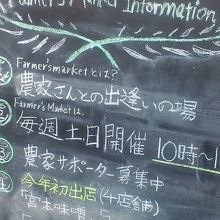 Farmer's Market Information
Farmer's market とは?
農家さんとの出逢いの場
Farmer's Market は、
毎週土日開催 10時〜1
農家サポーター募集中
今年初出店(4店舗)
宮本味噌